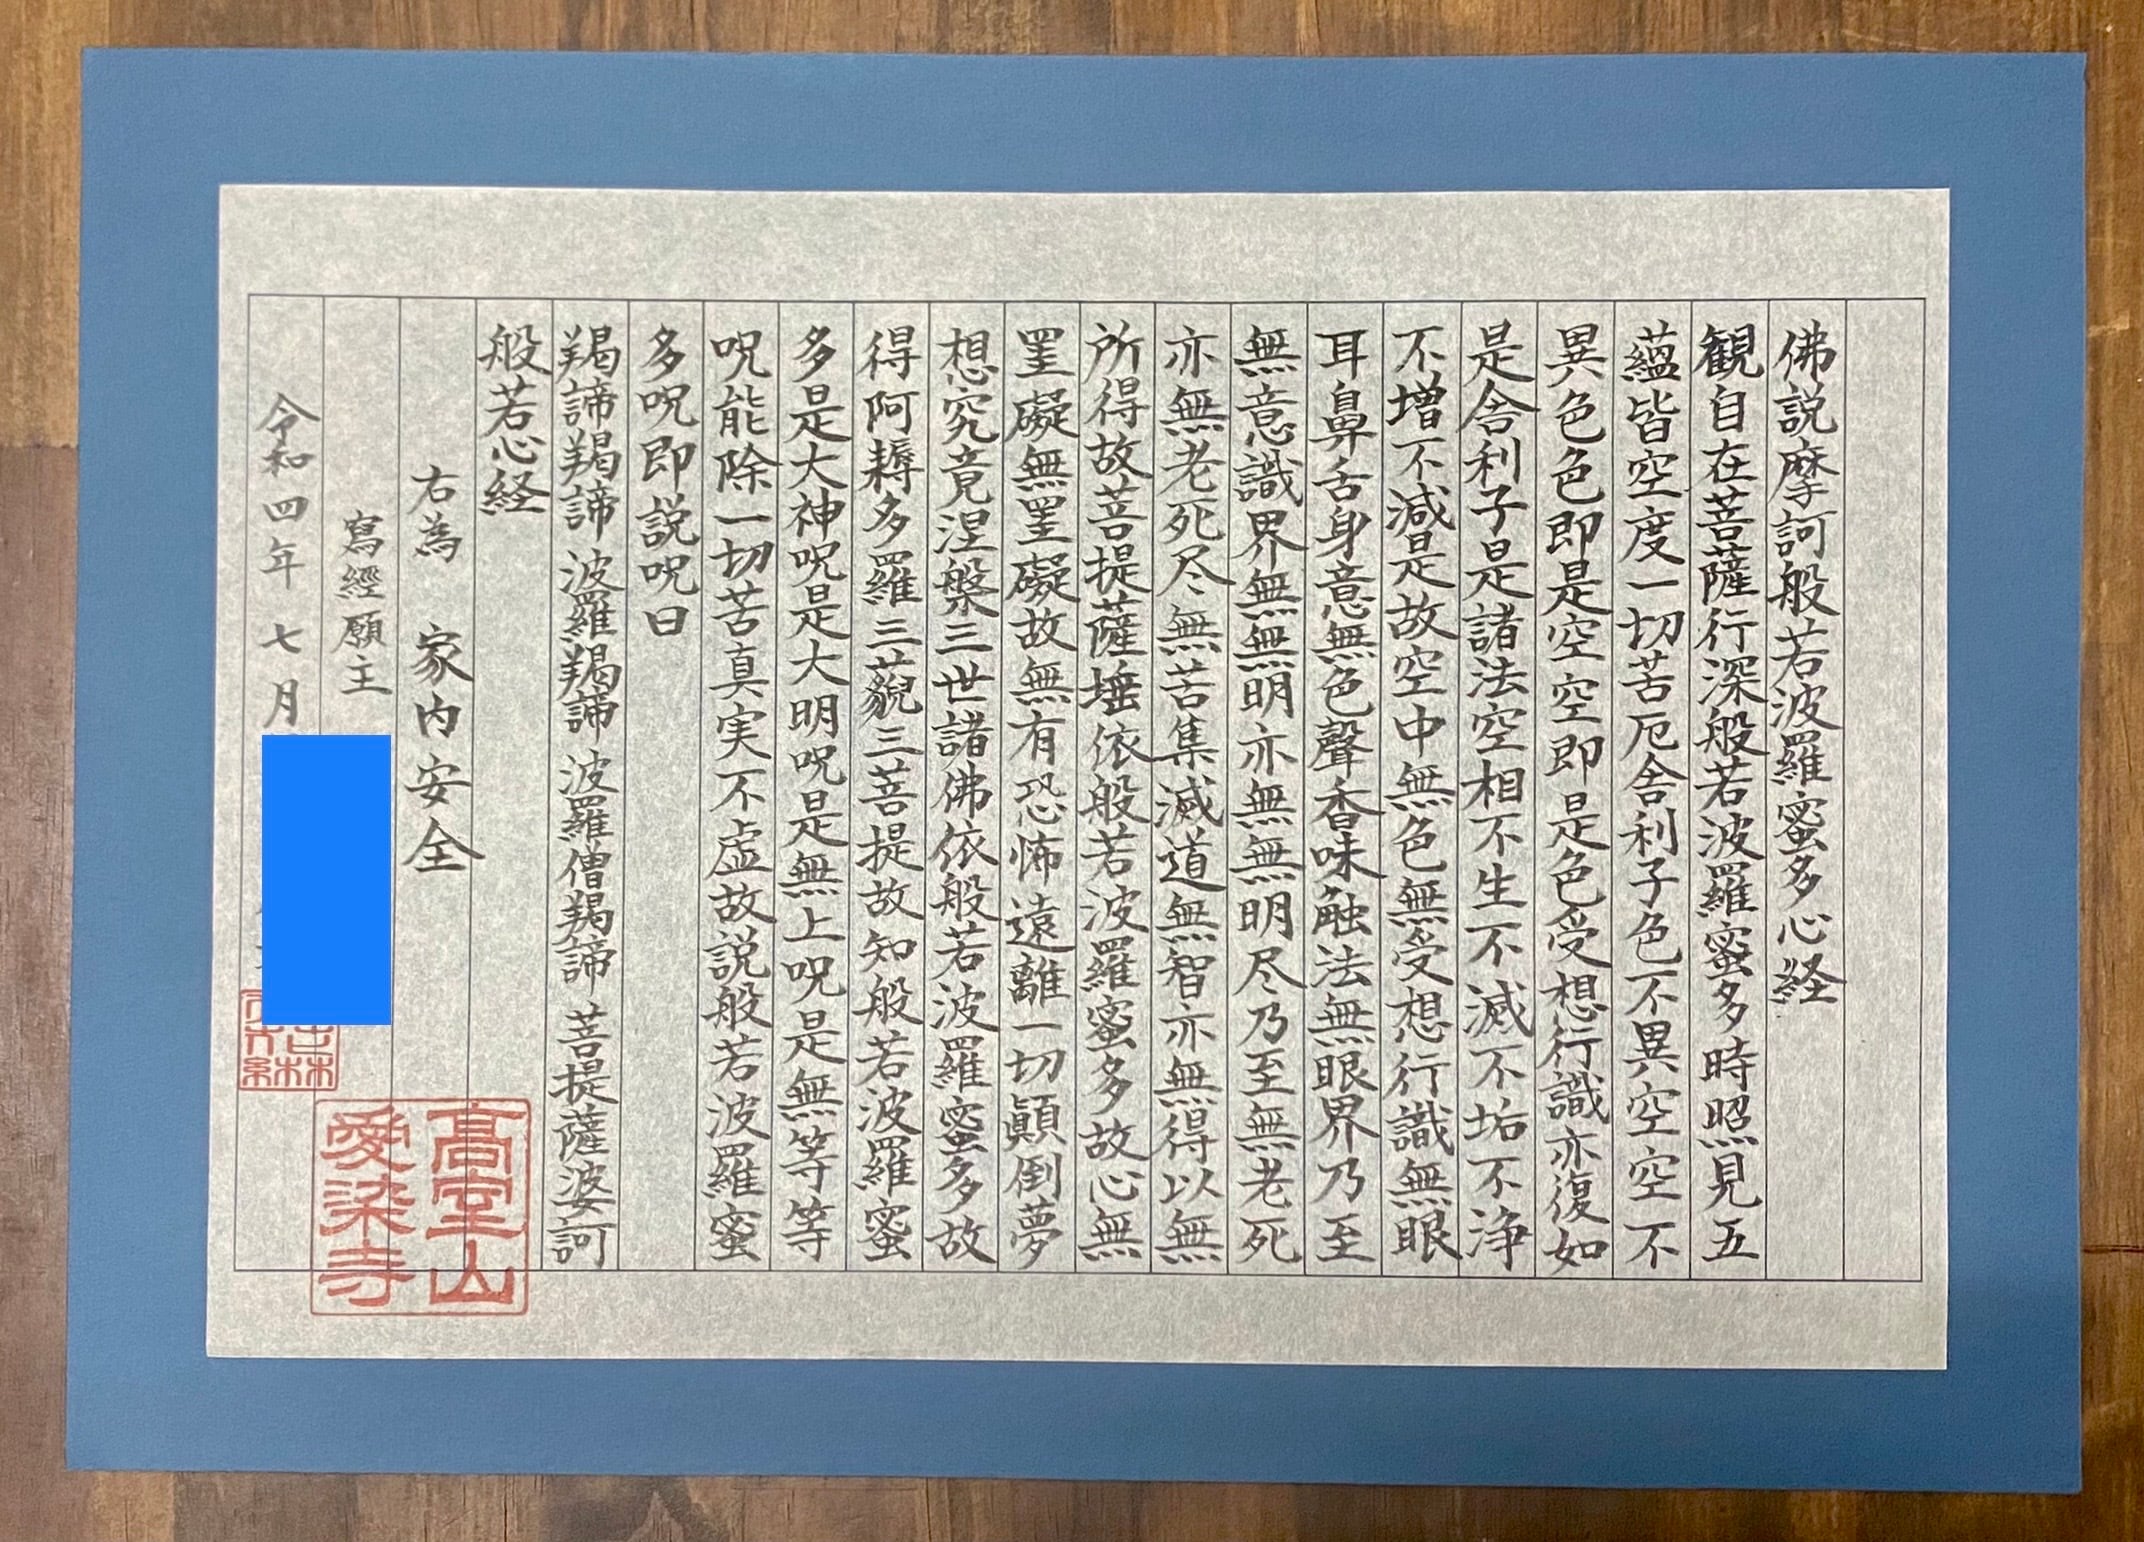 佛説摩訶般若波羅蜜多心経
観自在菩薩行深般若波羅蜜多時照見五
蘊皆空度一切苦厄舎利子色不異空空不
異色色即是空空即是色受想行識亦復如
是舎利子是諸法空相不生不滅不垢不浄
不増不減是故空中無色無受想行識無眼
耳鼻舌身意無色聲香味触法無眼界乃至
無意識界無無明亦無無明尽乃至無老死
亦無老死尽無苦集滅道無智亦無得以無
所得故菩提薩埵依般若波羅蜜多故心無
罣礙無罣礙故無有恐怖遠離一切顛倒夢
想究竟涅槃三世諸佛依般若波羅蜜多故
得阿耨多羅三藐三菩提故知般若波羅蜜
多是大神呪是大明呪是無上呪是無等等
呪能除一切苦真実不虚故説般若波羅蜜
多呪即説呪曰
羯諦羯諦 波羅羯諦 波羅僧羯諦 菩提薩婆訶
般若心経
右為 家内安全
寫經願主
令和四年 七月
高室山
愛染寺